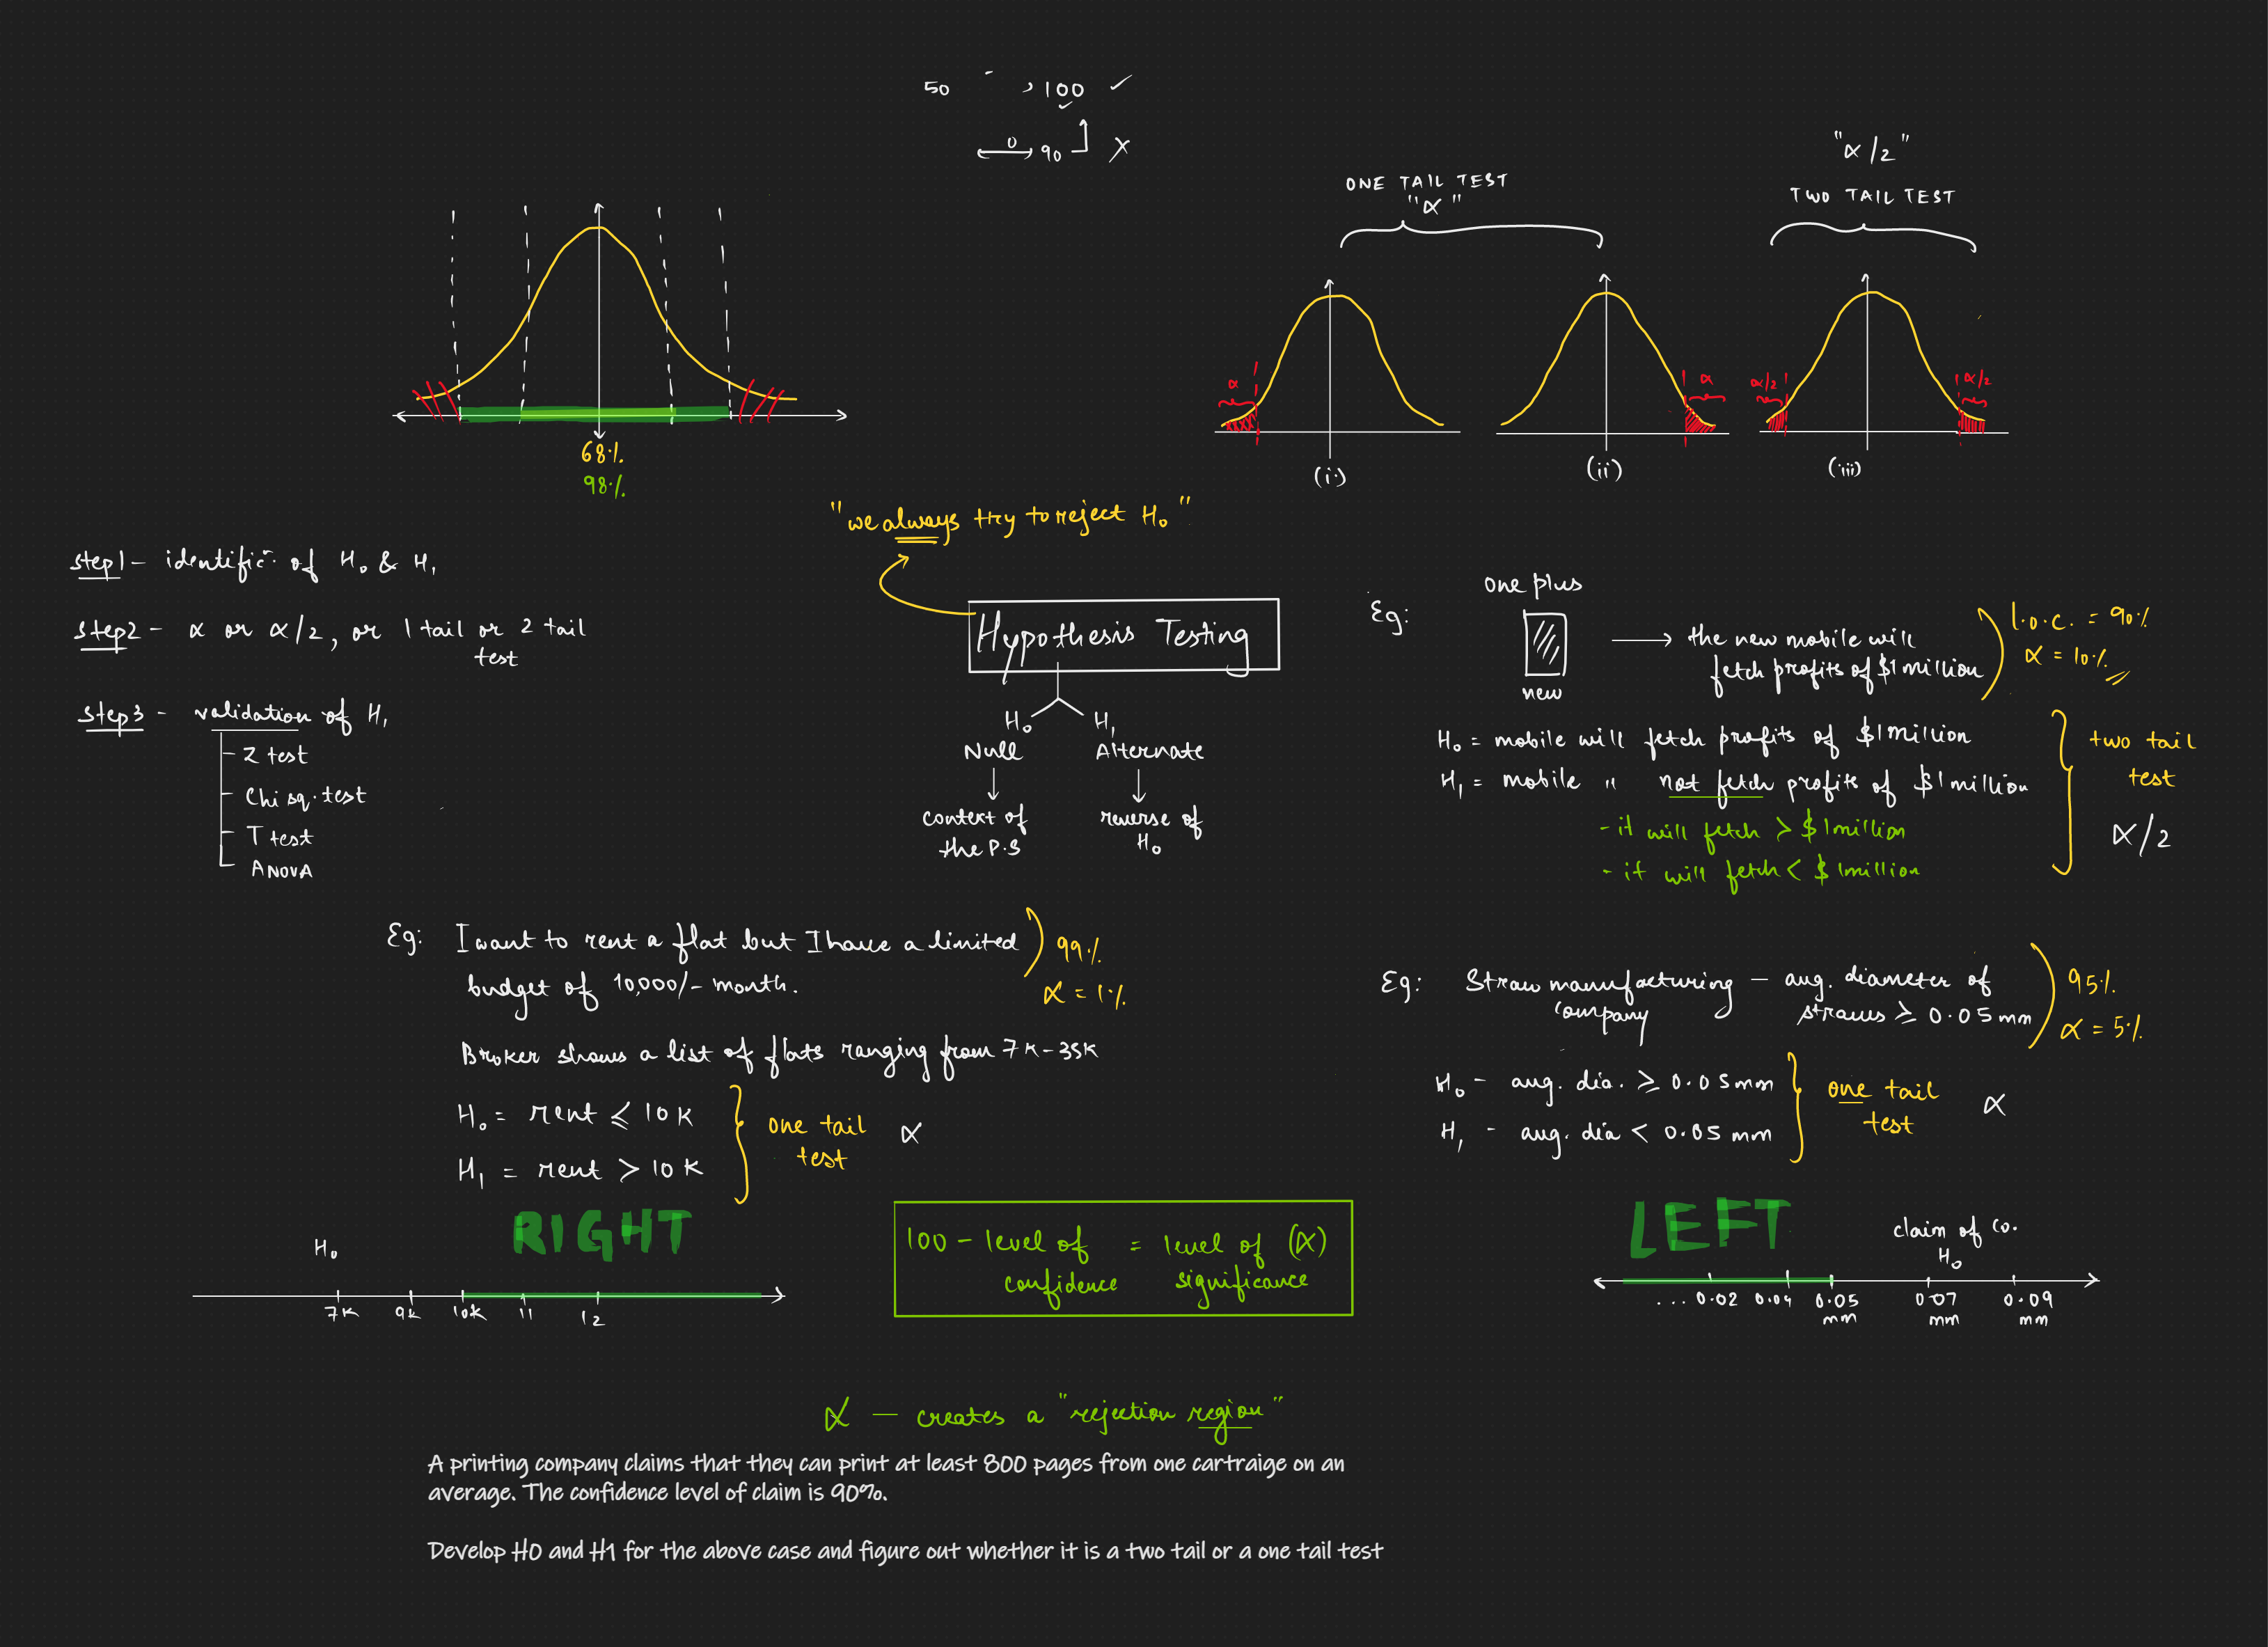 50 → 100 ✓
0 90 X
"α/2"
ONE TAIL TEST
"α"
TWO TAIL TEST
α
α
α/2
α/2
68%
98%
(i)
(ii)
(iii)
"we always try to reject H₀"
Step1 - identific<sup>n</sup> of H₀ & H₁
Step2 - α or α/2, or 1 tail or 2 tail
test
Step3 - validation of H₁
- Z test
- Chi sq. test
- T test
- ANOVA
Hypothesis Testing
H₀ H₁
Null Alternate
context of
the P.S
reverse of
H₀
Eg:
one plus
new
→ the new mobile will
fetch profits of $1 million
l.o.c. = 90%
α = 10%
H₀ = mobile will fetch profits of $1 Million
H₁ = mobile " not fetch profits of $1 million
- it will fetch > $1 million
- it will fetch < $1 million
two tail
test
α/2
Eg: I want to rent a flat but I have a limited
budget of 10,000/- month.
99%
α = 1%
Broker shows a list of flats ranging from 7K-35K
H₀ = rent ≤ 10K
H₁ = rent > 10K
one tail
test
α
RIGHT
H₀
7K 9K 10K 11 12
100 - level of = level of (α)
confidence significance
Eg: Straw manufacturing - avg. diameter of
company straws ≥ 0.05 mm
95%
α = 5%
H₀ - avg. dia. ≥ 0.05mm
H₁ - avg. dia < 0.05 mm
one tail
test
α
LEFT
claim of Co.
H₀
... 0.02 0.04 0.05 0.07 0.09
mm mm mm
α - creates a "rejection region"
A printing company claims that they can print at least 800 pages from one cartraige on an
average. The confidence level of claim is 90%.
Develop H0 and H1 for the above case and figure out whether it is a two tail or a one tail test